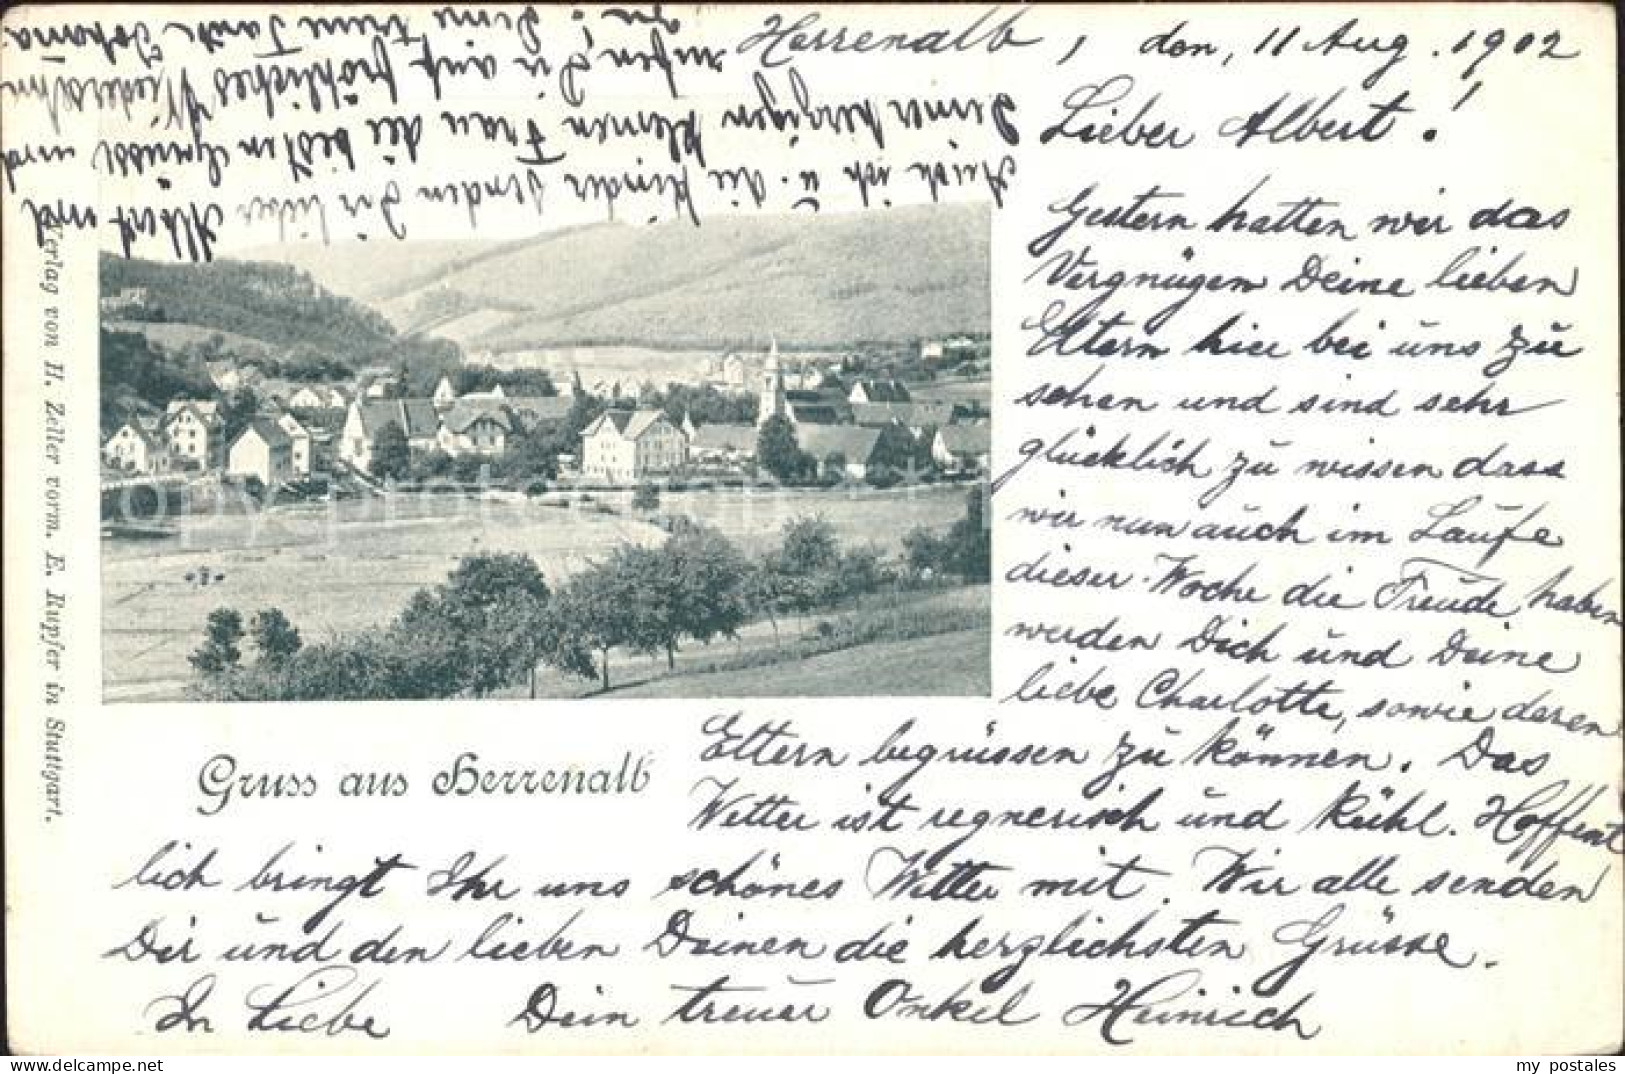 Herrenalb, den, 11 Aug. 1902
Lieber Albert!
Gestern hatten wir das
Vergnügen Deine lieben
Eltern hier bei uns zu
sehen und sind sehr
glücklich zu wissen dass
wir nun auch im Laufe
dieser Woche die Freude haben
werden Dich und Deine
liebe Charlotte, sowie deren
Eltern begrüssen zu können. Das
Wetter ist regnerisch und kühl. Hoffent
lich bringt Ihr uns schönes Wetter mit. Wir alle senden
Dir und den lieben Deinen die herzlichsten Grüsse.
In Liebe Dein treuer Onkel Heinrich
Auch ich u. die Kinder senden Dir lieber Albert und
Deiner herzigen kleinen Frau die besten Grüsse und
rufen Dir auf fröhliches Wiedersehn
zu! Deine treue Tante Johanna.
Gruss aus Herrenalb
Verlag von H. Zeller vorm. E. Kupfer in Stuttgart.
my postales